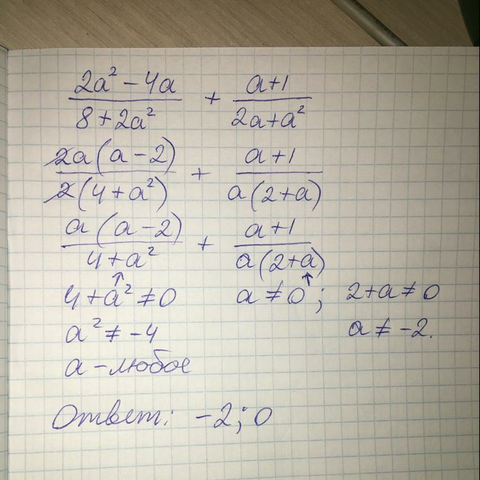 (2a² − 4a)/(8 + 2a²) + (a+1)/(2a+a²)
2a(a−2)/2(4+a²) + (a+1)/a(2+a)
a(a−2)/4+a² + (a+1)/a(2+a)
4+a² ≠ 0 a ≠ 0; 2+a ≠ 0
a² ≠ −4 a ≠ −2.
a − любое
Ответ: −2; 0